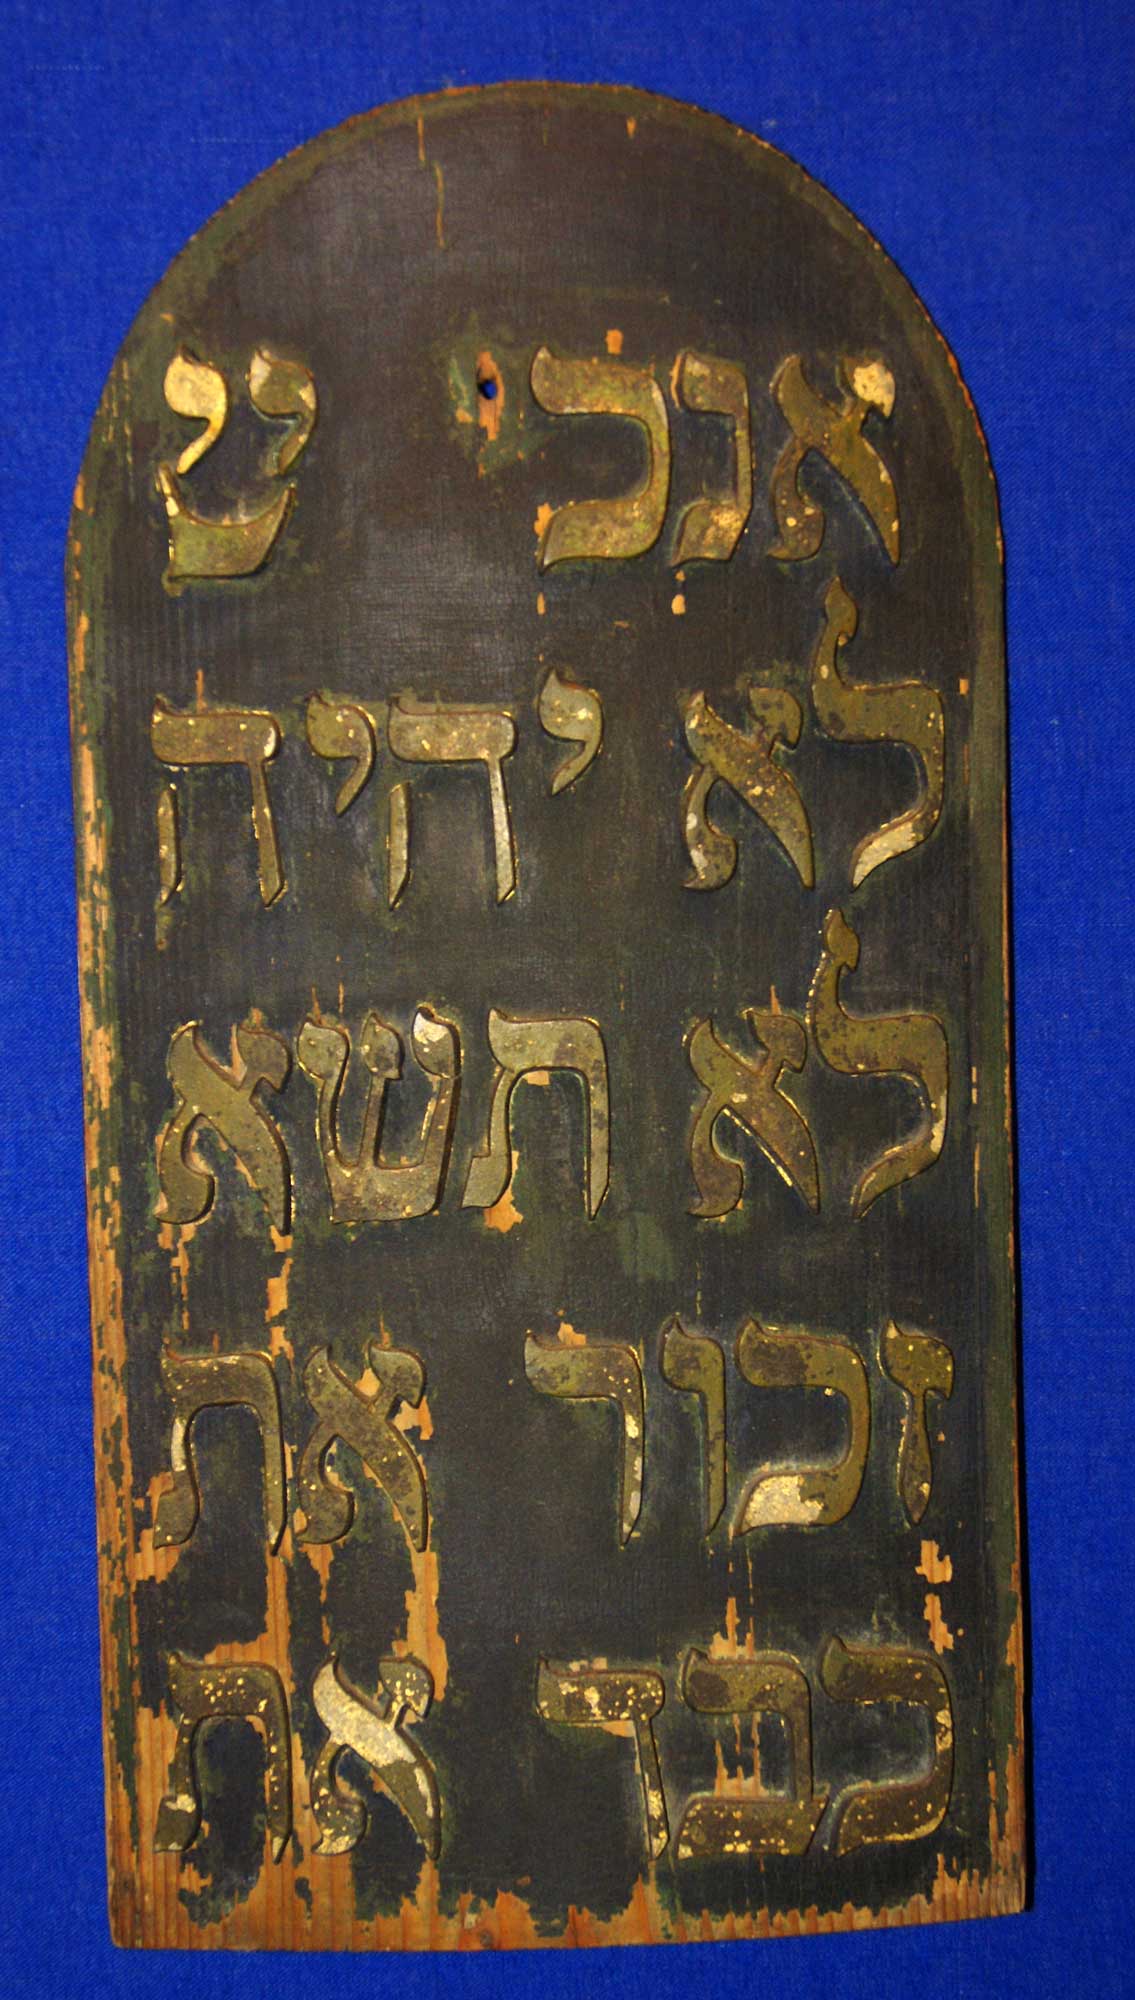 אנכ יי
לא יהיה
לא תשא
זכור את
כבד את